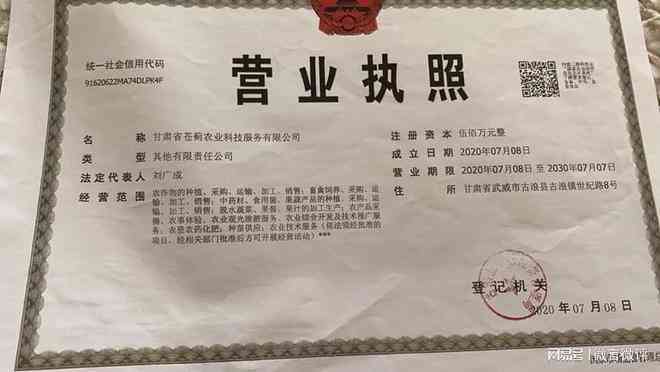 统一社会信用代码
91620622MA74DLPK4F
营业执照
名 称 甘肃省苍蓟农业科技服务有限公司
类 型 其他有限责任公司
法定代表人 刘广成
经营范围 农作物的种植、采购、运输、加工、销售；畜禽饲养、采购、运
输、加工、销售；中药材、食用菌、果蔬产品的种植、采购、运
输、加工、销售；脱水蔬菜、果蔬、果汁的加工生产；农产品采
摘、农事体验、农业观光旅游服务、农业综合开发及技术推广服
务；农垦农药化肥；种苗供应；农业技术服务（依法须经批准的
项目，经相关部门批准后方可开展经营活动）***
注册资本 伍佰万元整
成立日期 2020年07月08日
营业期限 2020年07月08日 至 2030年07月07日
住 所 甘肃省武威市古浪县古浪镇世纪路8号
登记机关
2020 年 07 月 08 日
网易号 | 微言微评